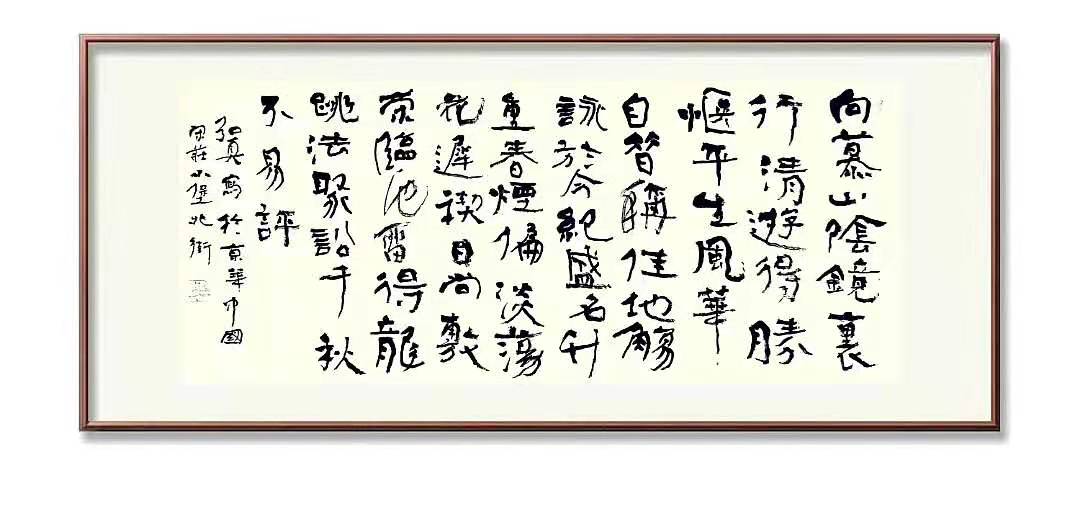 向慕山陰鏡裏
行清遊得勝
愜平生風華
自昔稱佳地觴
詠於今紀盛名竹
重春煙偏淡蕩
花遲禊日尚敷
榮臨池留得龍
跳法聚訟千秋
不易評
弘真寫於京華中國
宋莊小堡北街